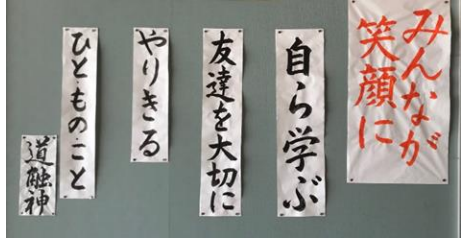 みんなが
笑顔に
自ら学ぶ
友達を大切に
やりきる
ひとものこと
道融神